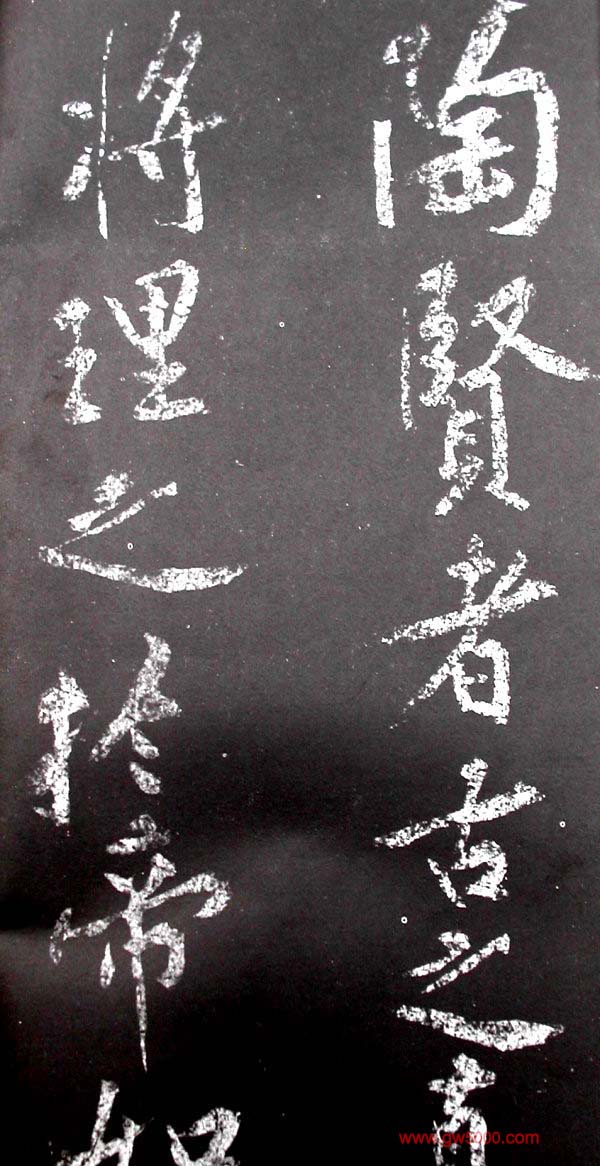 陶賢者古之
將理之於帝
www.gw5000.com